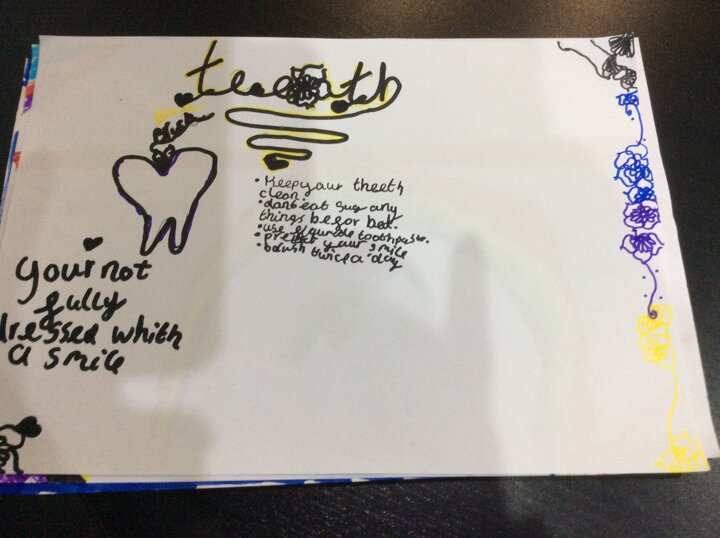 teeath
• Keep your theeth
clean.
• dont eat sug any
things befor bed.
• use flouride toothpaste.
• pretect your smile
• brush twice a day
your not
fully
dressed whith
a smile